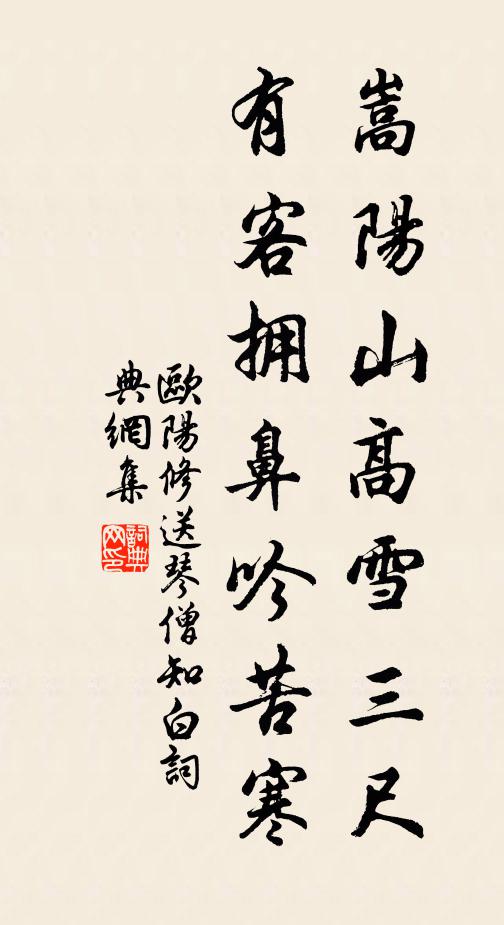 嵩陽山高雪三尺
有客拥鼻吟苦寒
歐陽修送琴僧知白詞
典網集
詞典
网印